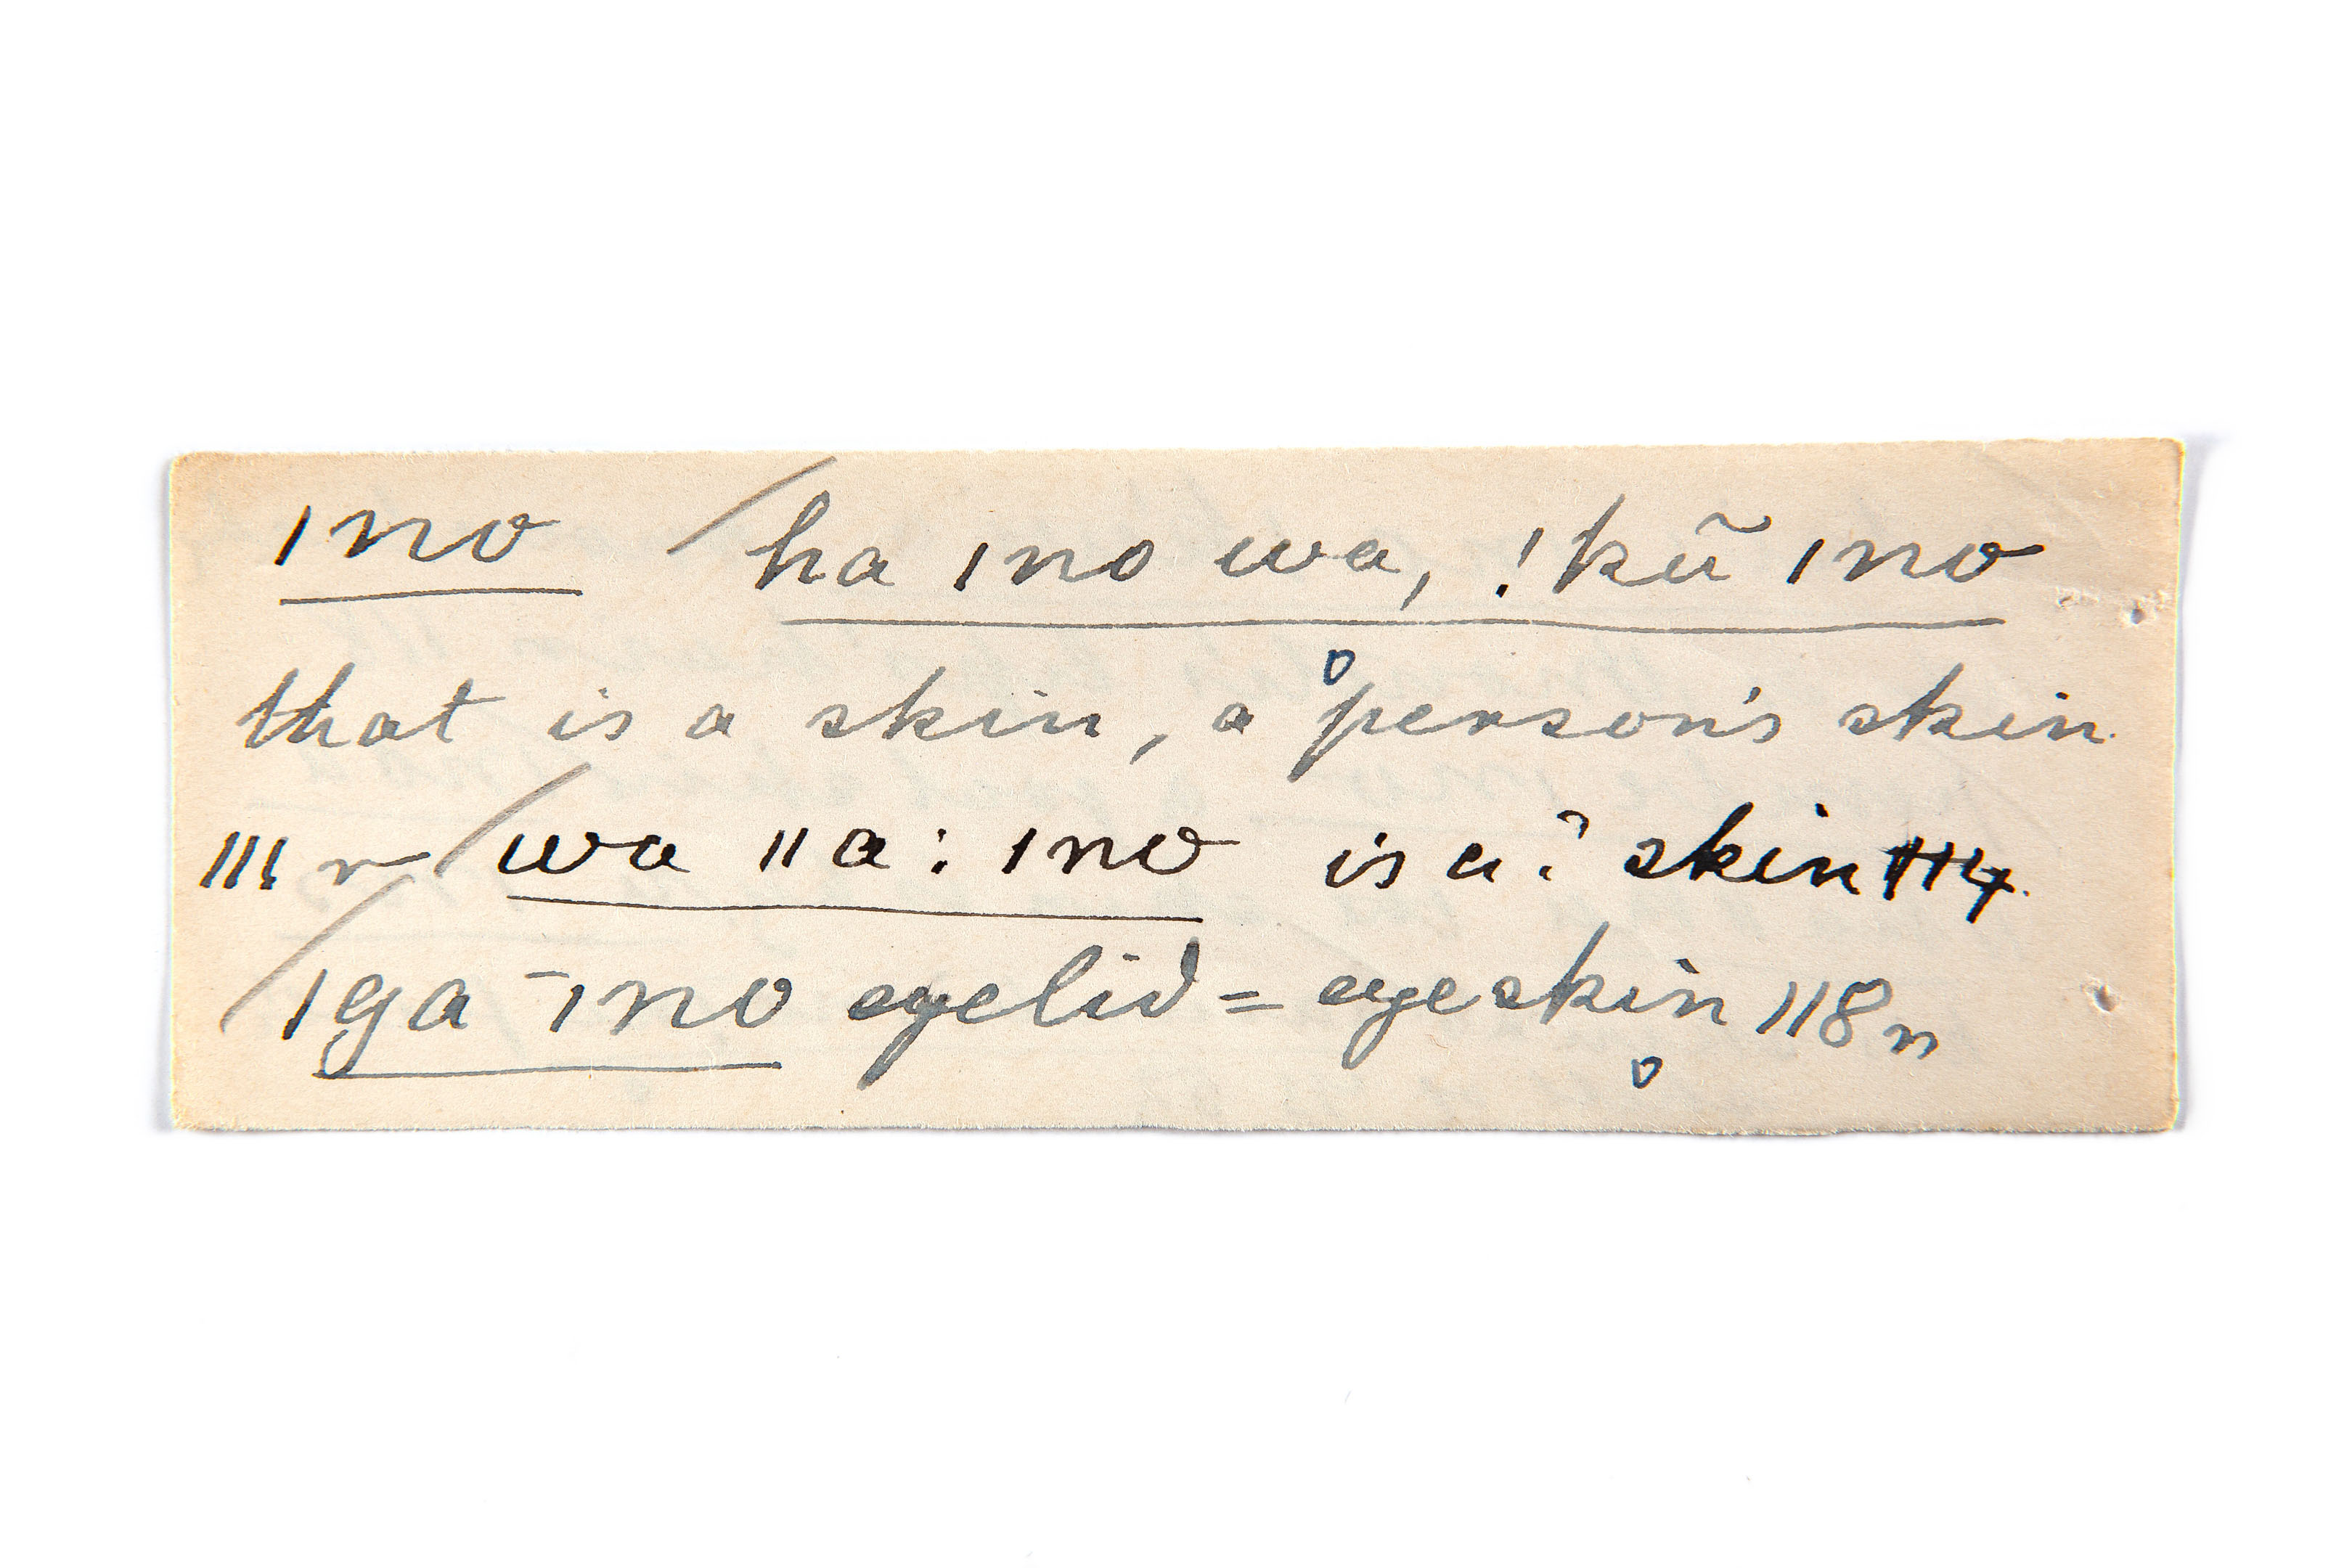 ǀno /ha ǀno wa, !kũ ǀno
that is a skin, a person's skin
111 n /wa ǁa: ǀno is a? skin 114.
/ǀga - ǀno eyelid = eye skin 118 n